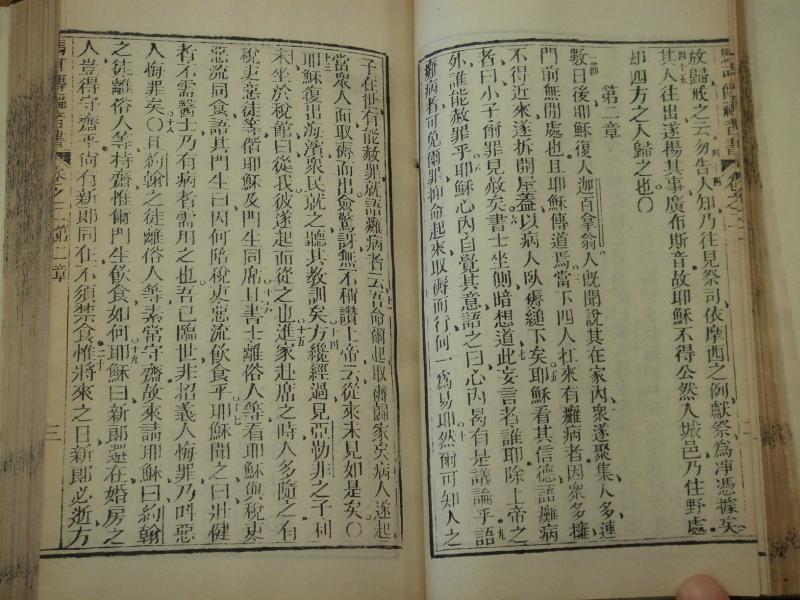 放歸戒之云勿告人知乃往見祭司依摩西之例獻祭爲凈憑據矣
其人往出遂揚其事廣布斯音故耶穌不得公然入城邑乃住野處
却四方之人歸之也〇
第二章
數日後耶穌復入迦百拿翁人旣聞說其在家內衆遂聚集人多連
門前無閒處也且耶穌傳道焉當下四人扛來有癱病者因衆多擁
不得近來遂拆開屋蓋以病人臥褥縋下矣耶穌看其信德語癱病
者曰小子爾罪見赦矣書士坐側暗想道此妄言者誰耶除上帝之
外誰能赦罪乎耶穌心內自覺其意語之曰心內曷有是議論乎語
癱病者可免爾罪抑命起來取褥而行何一爲易耶然爾可知人之
子在世有能赦罪就語癱病者云吾命爾起取褥歸家矣病人遂起
當衆人面取褥而出僉驚訝無不稱讚上帝云從來未見如是矣〇
耶穌復出海濱衆民就之聽其教訓矣方纔經過見亞勒非之子利
未坐於稅館曰從我彼遂起而從之也進家赴席之時人多隨之有
稅吏惡徒等偕耶穌及門生同席且書士離俗人等看耶穌與稅吏
惡流同食語其門生曰因何陪稅吏惡流飲食乎耶穌聞之曰壯健
者不需醫士乃有病者需用之也吾已臨世非招義人悔罪乃呌惡
人悔罪矣〇且約翰之徒離俗人等素常守齋故來請耶穌曰約翰
之徒離俗人等持齋惟爾門生飲食如何耶穌曰新郎還在婚房之
人豈得守齋乎尚有新郎同在不須禁食惟將來之日新郎必逝方
卷之二第二章
三